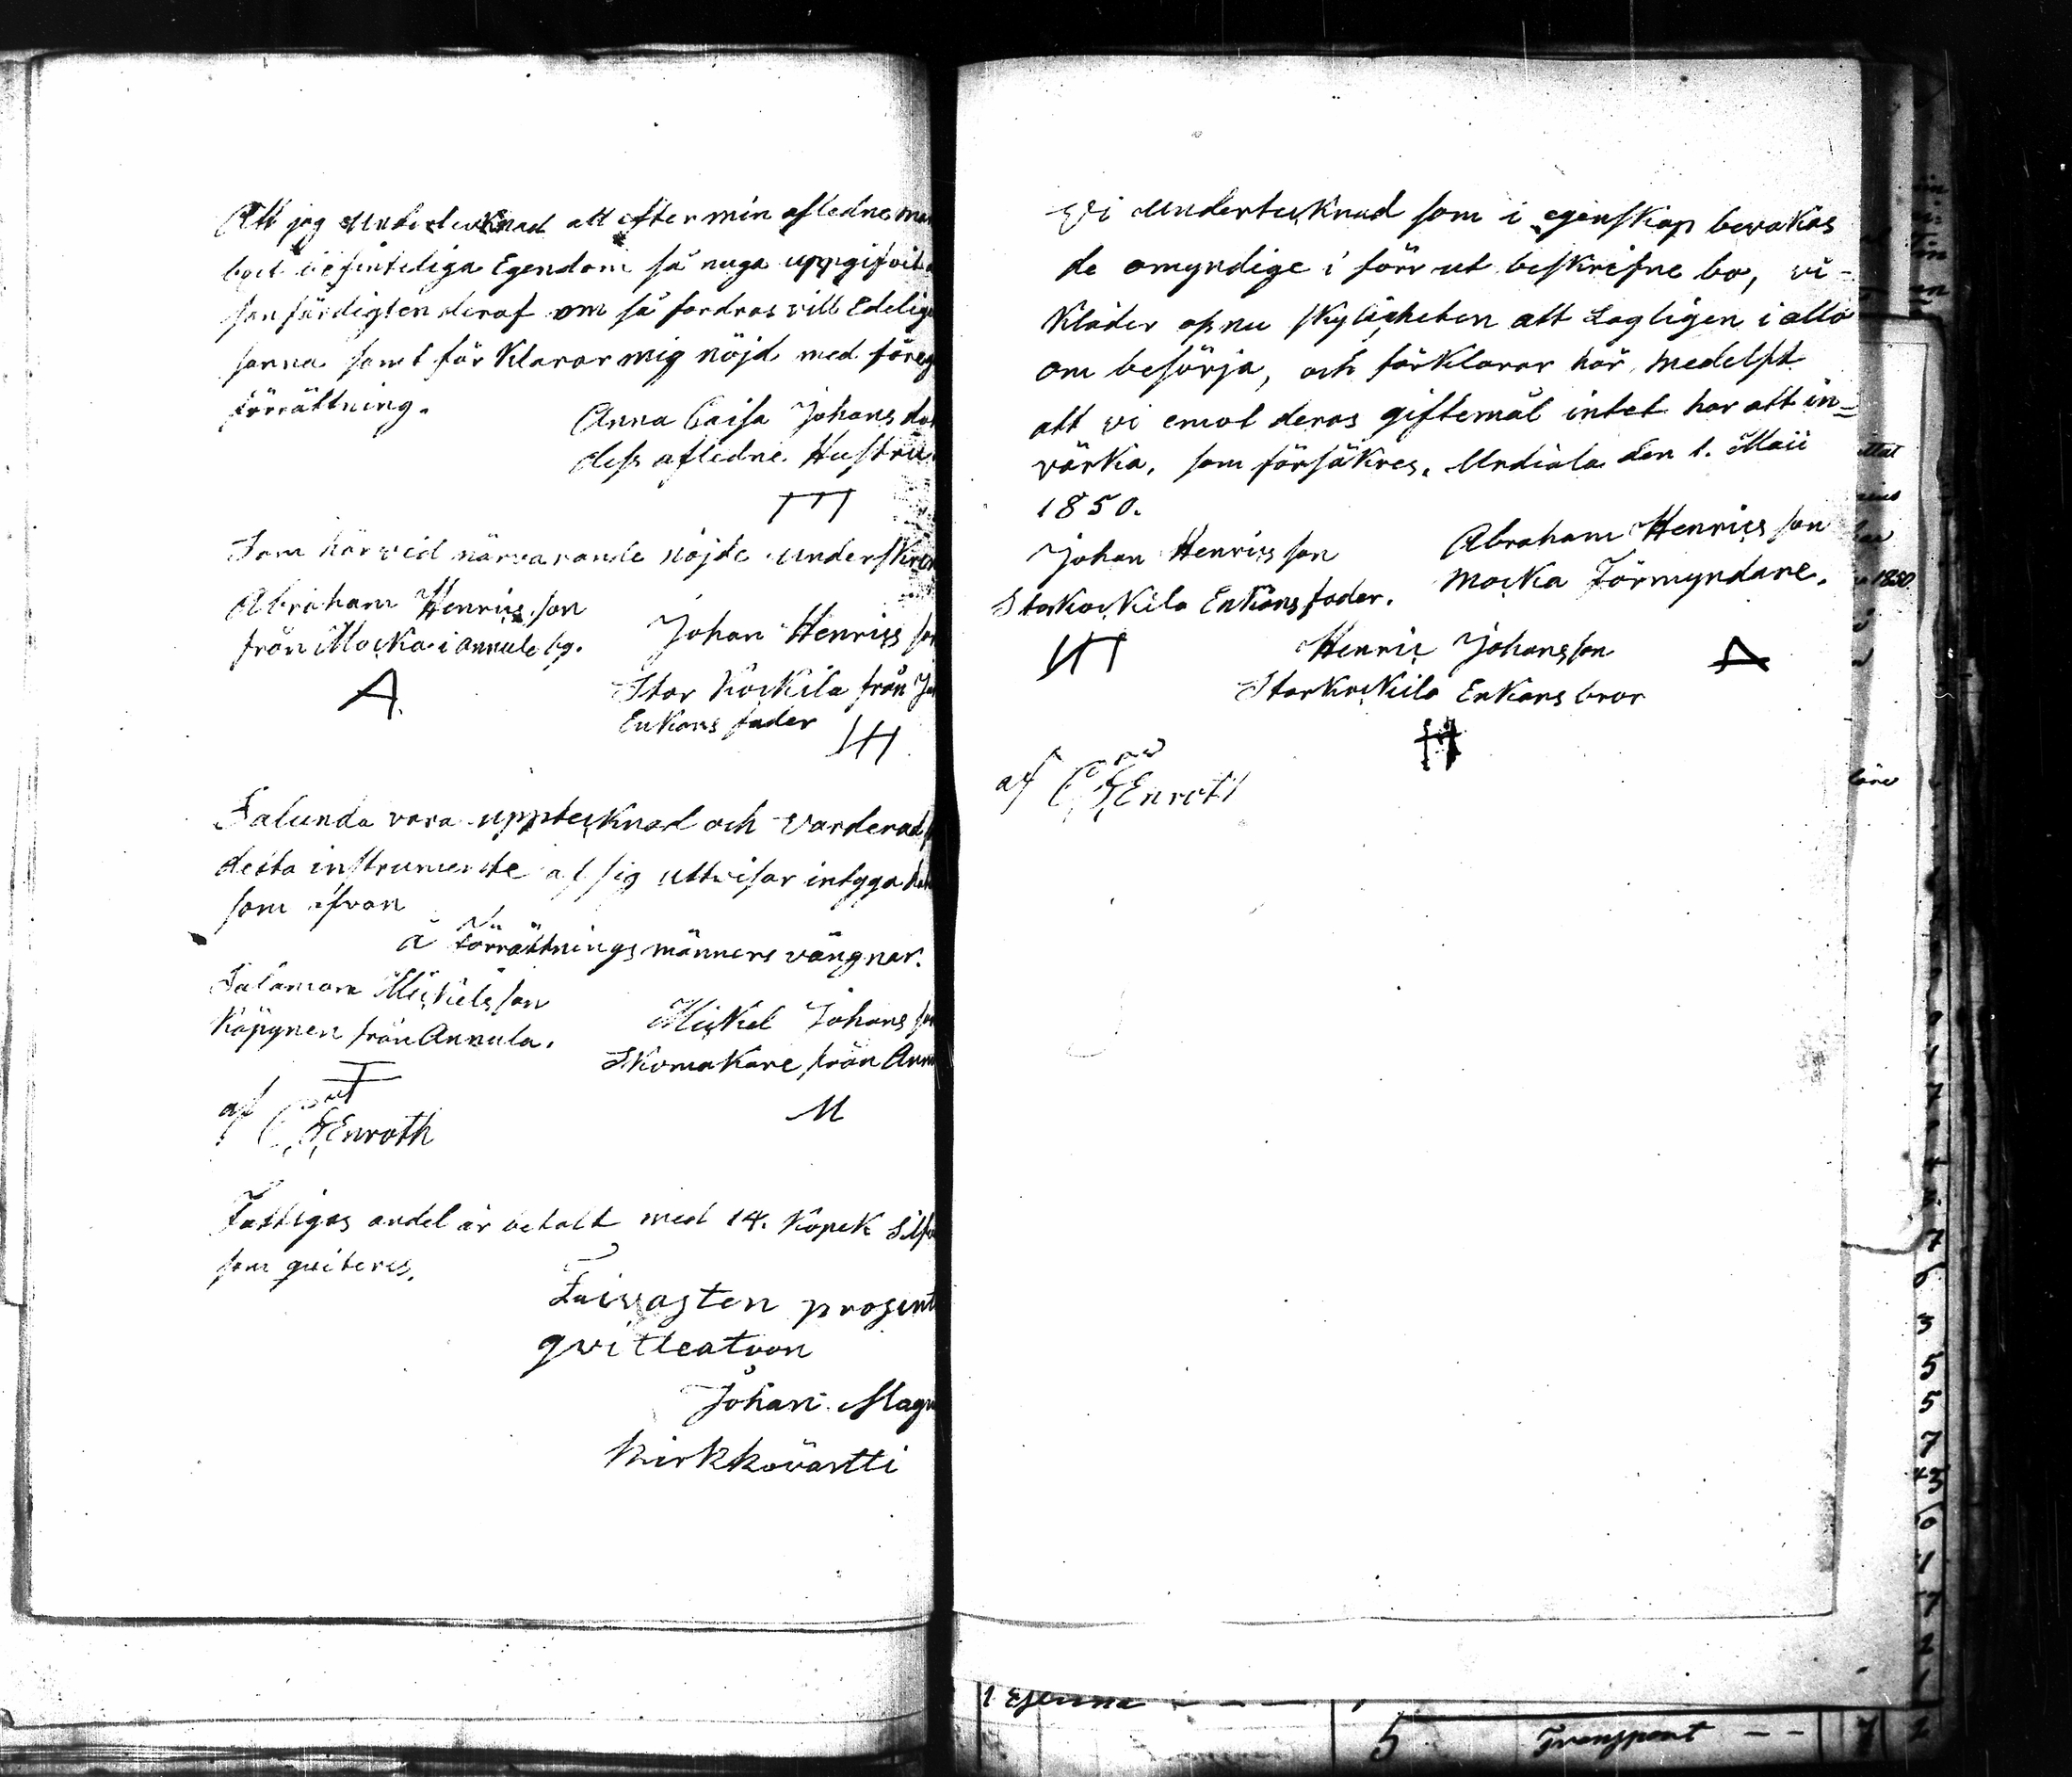 Att jag Undertecknad att efter min afledne man
boet befinteliga Egendom så nuga uppgifvit
sanfärdigten deraf om så fordras vill Edelig
sanna samt för Klarar mig nöjd med föreg
förrättning.
Anna Caisa Johans dot
dess afledne Hustru
Som härvid närvarande nöjde underskrif
Abraham Henrics son
från Mocka i Annula by.
A.
Johan Henrics son
Stor Kockila från
Enkans fader
Salunda vara upptecknad och Varderad
detta instrumente af sig uttvisar intyga
som ofvan
å förrättnings männers vängnar.
Salamon Mickels son
Köpynen från Annula.
Mickel Johans son
Skomakare från Ann
M
af C F Enroth
Fattigas andel är betalt med 14. Kopek Silf
som qviteres.
Faivasten prosent
qvitteatvon
Johan Magn
Kirkkovärtti
Vi Undertecknad som i egenskap bevakas
de omyndige i förr ut beskrifne bo, vi=
Kläder opnu skyligheten att Lagligen i allo
om besörja, och förklarar här medelst
att vi emot deras giftemål intet har att in=
värka, som försäkres. Urdiala den 1. Maii
1850.
Johan Henrics son
Storkockila Enkans fader.
Abraham Henrics son
Mocka Förmyndare.
Henric Johansson
Storkockila Enkans bror
A
af C F Enroth
5 Transport - - 7